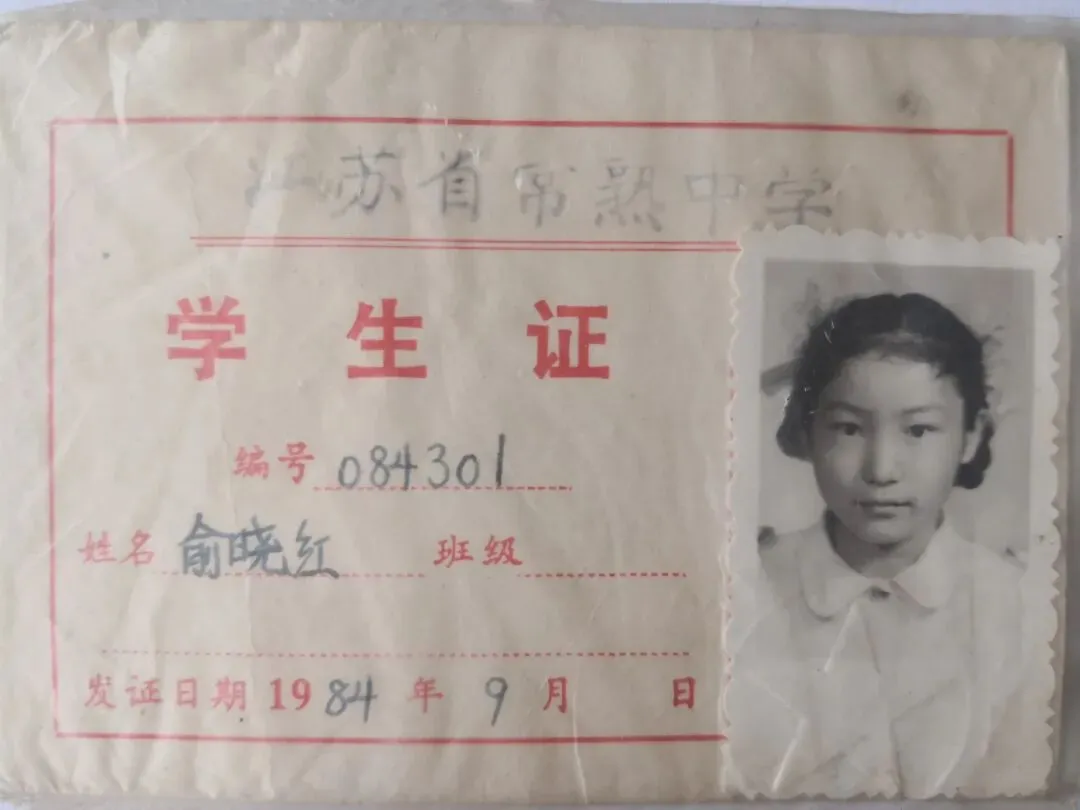 江苏省常熟中学
学生证
编号 084301
姓名 俞晓红 班级
发证日期 1984年9月 日